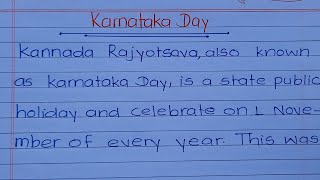 Karnataka Day
Kannada Rajyotsava, also known
as Karnataka Day, is a state public
holiday and celebrate on 1 Nove-
mber of every year. This was